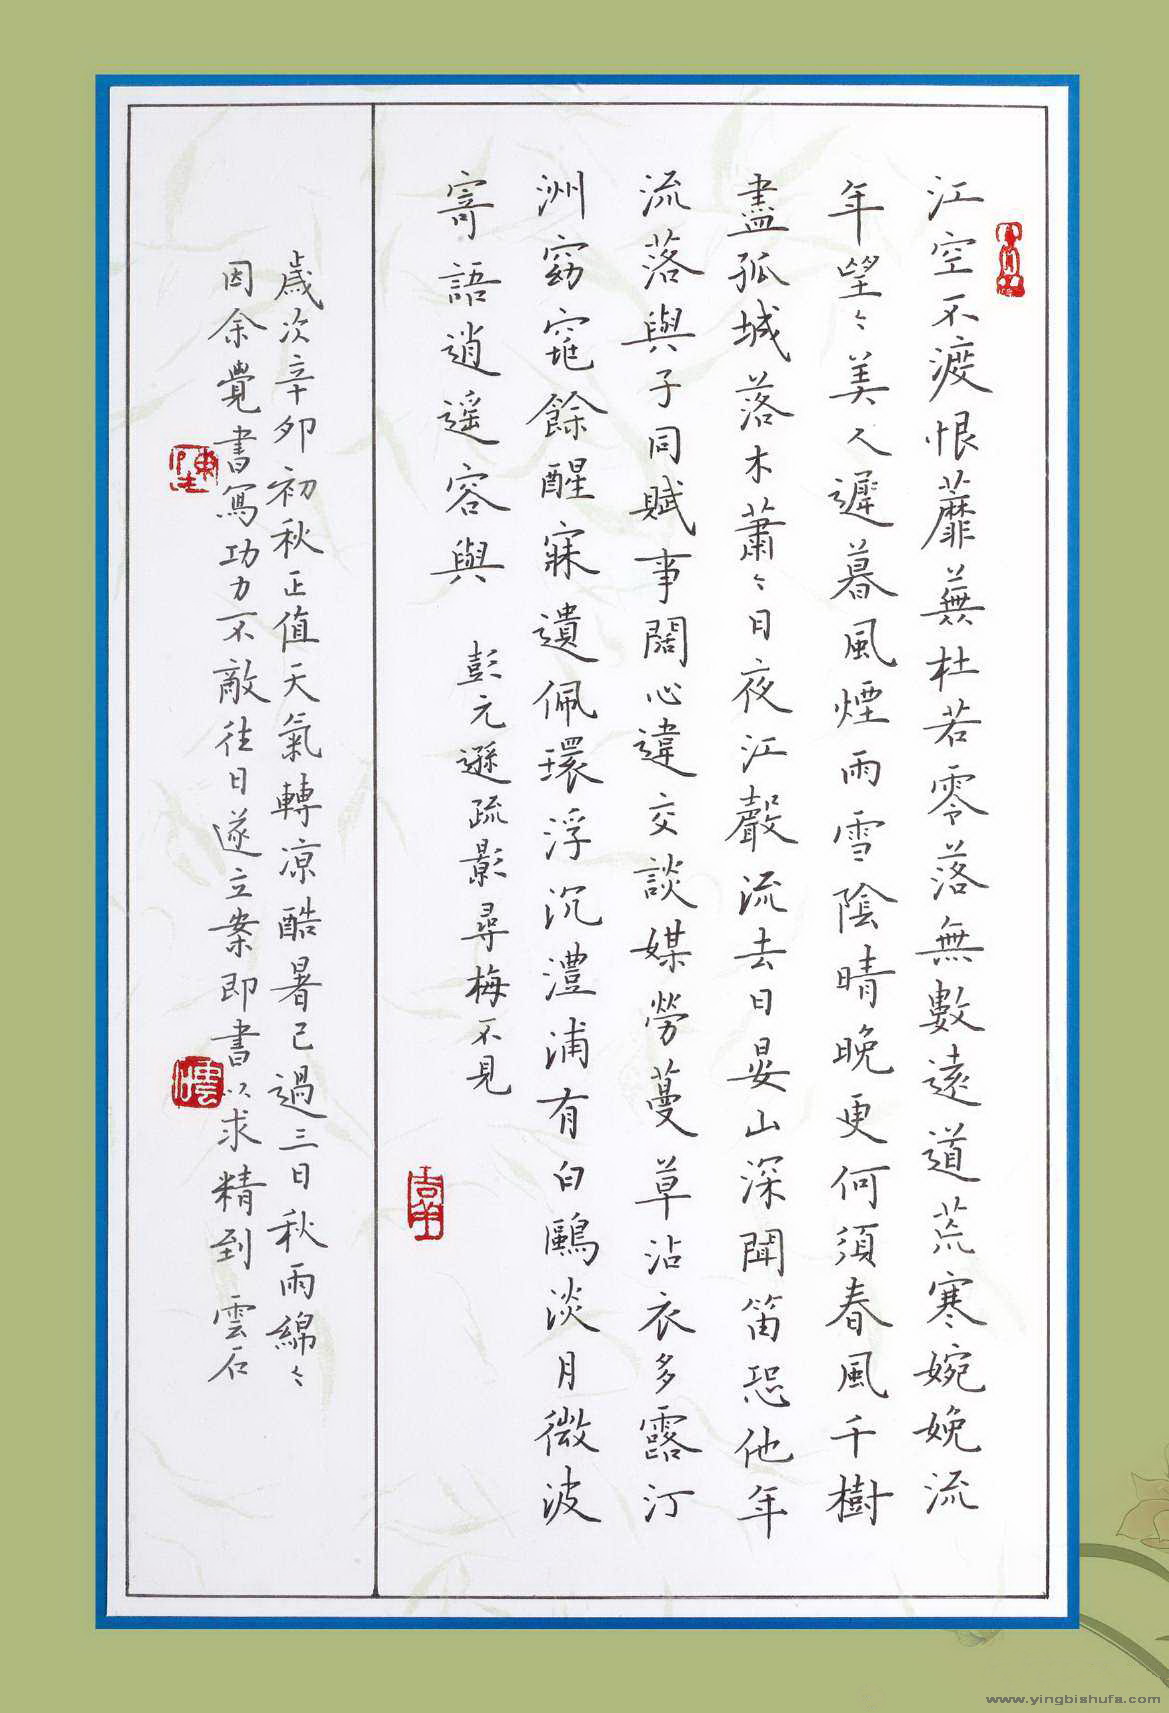 江空不渡恨蘼蕪杜若零落無數遠道荒寒婉娩流
年望々美人遲暮風煙雨雪陰晴晚更何須春風千樹
盡孤城落木蕭々日夜江聲流去日晏山深聞笛恐他年
流落與子同賦事闊心違交談媒勞蔓草沾衣多露汀
洲窈窕餘醒寐遺佩環浮沉澧浦有白鷗淡月微波
寄語逍遥容與 彭元遜疏影尋梅不見
歲次辛卯初秋正值天氣轉凉酷暑已過三日秋雨綿々
因余覺書寫功力不敵往日遂立案即書以求精到 雲石
www.yingbishufa.com